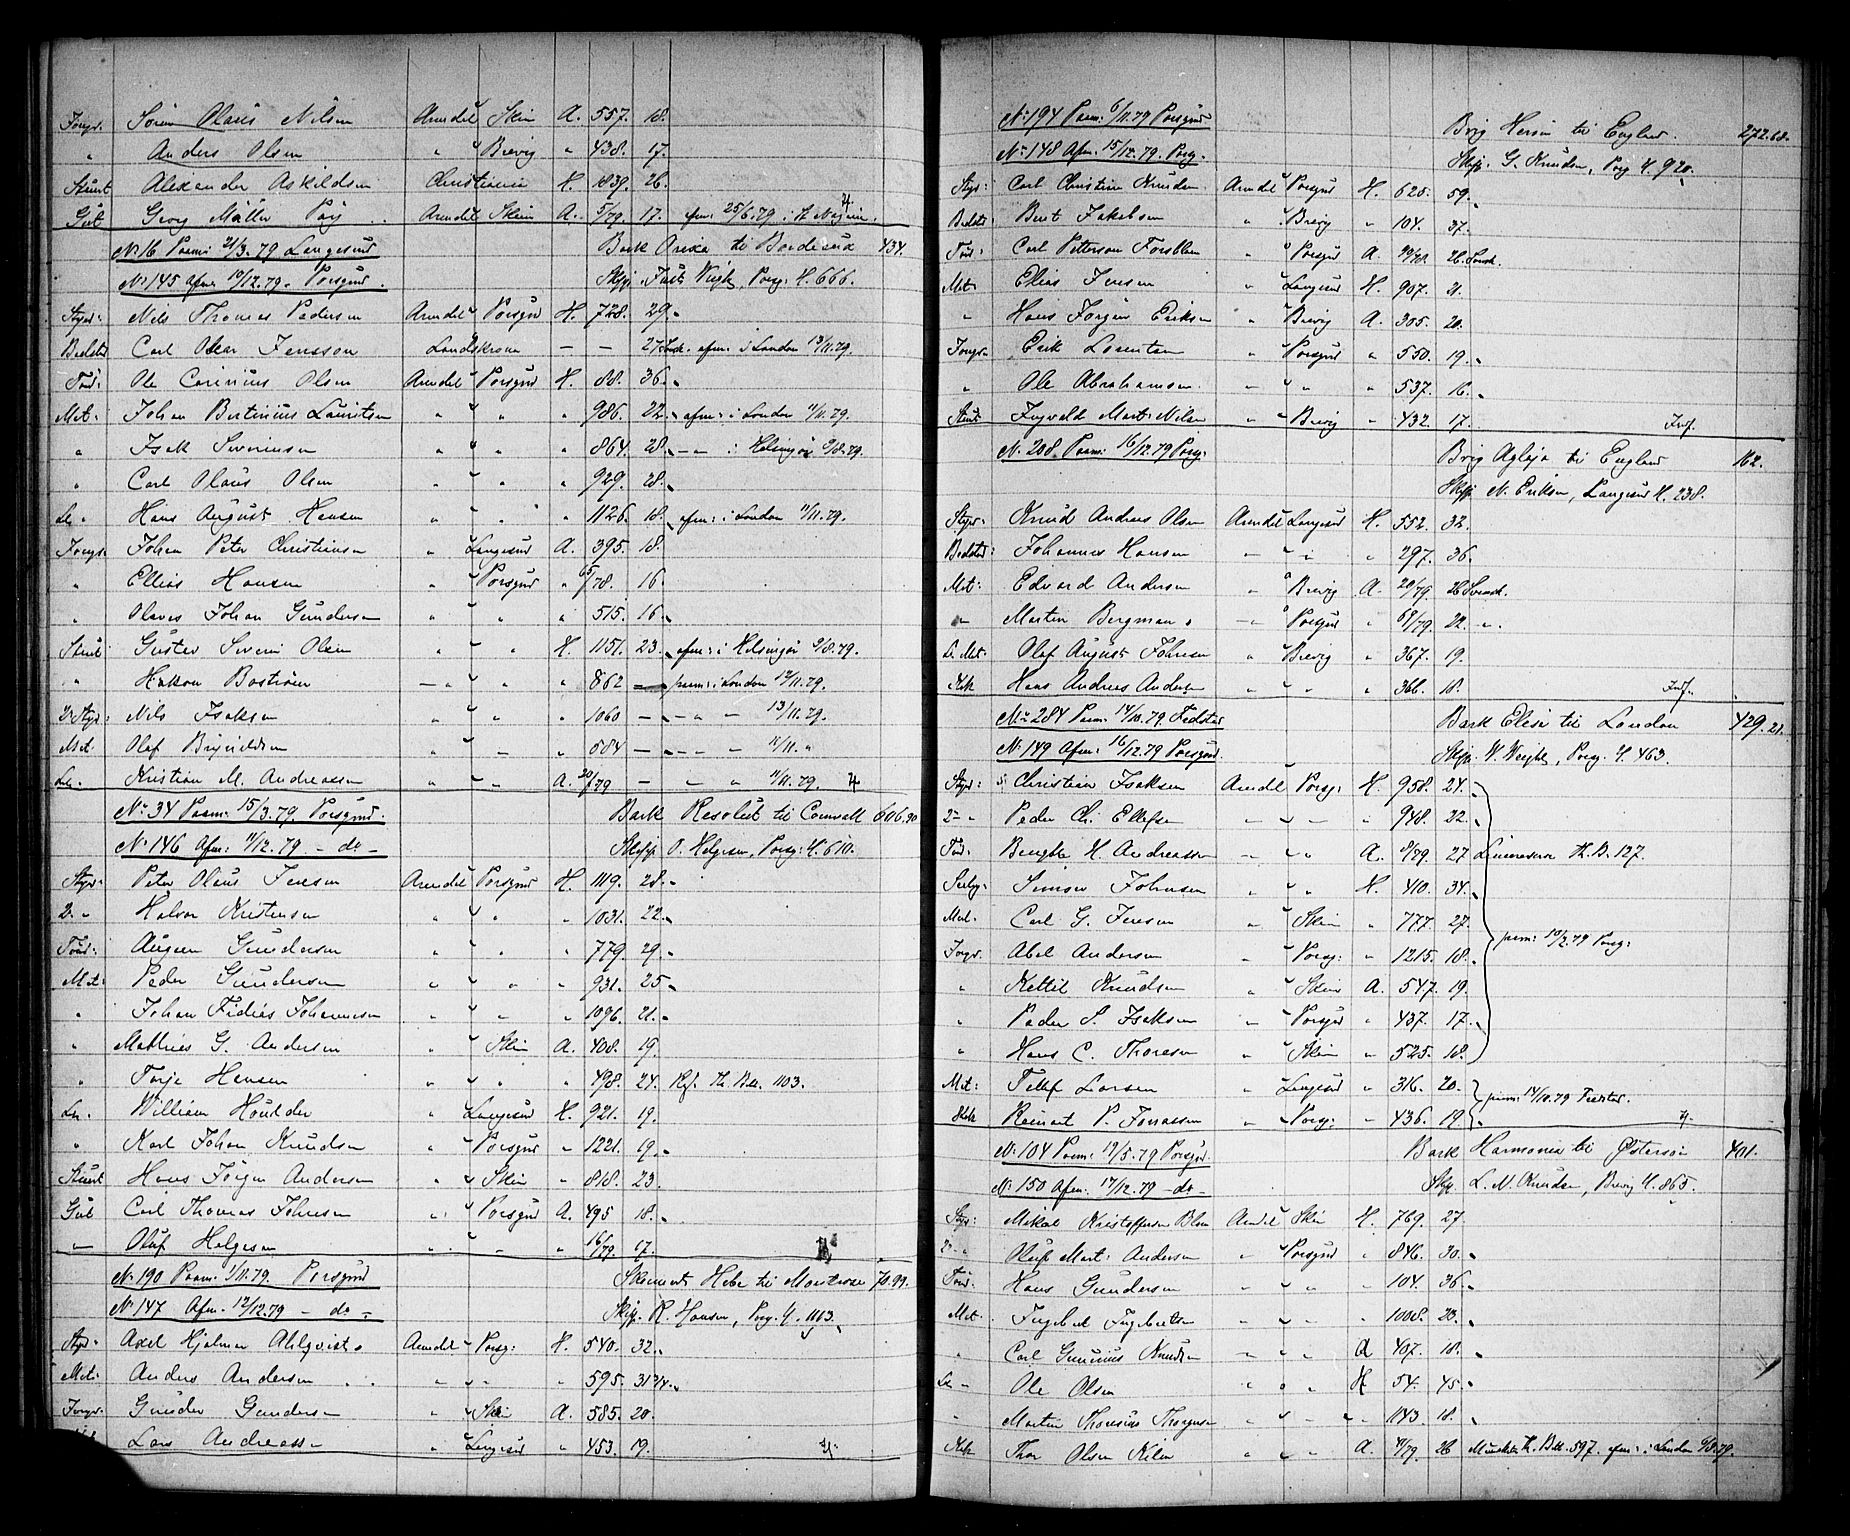 Jongr. Søren Olaus Nilsen Arendel " Skien A. 557. 18.
" Anders Olsen " " Brevig " 438. 17.
Stuert Alexander Askildsen Christiania H. 1839. 26.
Gut Georg Møller Arendel Skien A. 5/79. 17. afm: 25/6.79 i
No. 16 Paam: 21/3.79 Langesund Bark til Bordeaux 434.
No. 145 Afm: 10/12.79. Porsgrund. Skipp. Porsg: H. 666.
Styrm: Nils Thomas Pedersen Arendel " Porsgrd H. 728. 29.
Bedstm Carl Oscar Jensson Landskrona — — 27 Svensk. afm: i London 13/11.79.
Tøm: Ole Olsen Arendel " Porsgrd H. 88. 36.
Mat: Johan Bertinius Lauritsen " " " " 986. 22. afm: i London 11/11.79.
" Isak Severinsen " " " 864. 28. — " — i Helsingør 9/8.79.
" Carl Olaus Olsen " " " 929. 28.
L. " Hans August Hansen " " " " 1126. 18. afm: i London 11/11.79.
Jongr. Johan Peter Christiansen " Langesund A. 395. 18.
" Ellias Hansen " " Porsgrd " 65/78. 16.
" Olaves Johan Gundersen " " " " 515. 16.
Stuert Gustav Severin Olsen " " " H. 1151. 23. afm: i Helsingør 9/8.79.
" Hakon Boström — " — " " " 862 — paam: i London 12/11.79.
2. Styr: Nils Isaksen " " " " 1060 — " — " — 13/11.79.
Mat. Olaf Brynildsen " " " " 884 — " " " 11/11. "
L. " Kristian M. Andreassen " " " A. 20/79 — " " 11/11.79.
No. 34 Paam: 15/3.79. Porsgrund. Bark Resolut til Cornwall 606.90
No. 146 Afm: 11/12.79 — do — Skipp. O. Helgesen, Porsg: H. 610.
Styr: Peter Olaus Jensen Arendel " Porsgrund H. 1119. 28.
2. " Halvor Kristensen " " " " 1031. 22.
Tøm: Gundersen " " " " 779. 29.
Mat: Peder Gundersen " " " " 931. 25.
" Johan Fidias Johannesen " " " " 1096. 21.
" Mathias G. Andersen " " Skien A. 408. 19.
" Torje Hansen " " " " 498. 24.
L. " William Houlder " Langesund H. 921. 19.
" Karl Johan Knudsen " " Porsgrd " 1221. 19.
Stuert Hans Jørgen Andersen " " Skien " 818. 23.
Gut Carl Thomas Johnsen " " Porsgrd A. 495 18.
— Oluf Helgesen " " " " 16/79. 17.
No. 190 Paam. 1/11.79. Porsgrund Hebe til Montrose 70.99.
No. 147 Afm. 12/12.79 — do — Skipp. R. Hansen, Porsg. H. 1113.
Styr: Axel Hjalmar Ahlqvist Arendel " Porsg: H. 540. 32.
Mat: Anders Andersen " " " " 595. 31
Jongr. Gunder Gundersen " " Skien A. 585. 20.
Lars Andreassen " " Langesund " 453. 19.
No. 194 Paam: 6/11.79 Porsgrund Brig til England. 272.68.
No. 148 Afm. 15/12.79. Porsg. Skipp. G. Knudsen, Porsg H. 920.
Styr: Carl Christian Knudsen Arendel " Porsgrd H. 625. 59.
Bedstm: Bent Jakobsen " " Brevig " 104. 37.
Tøm: Carl Petterson " " Porsgrd A. 26. Svensk.
Mat: Elias Jensen " " Langesund H. 907. 21.
" Hans Jørgen Eriksen " " Brevig A. 305. 20.
Jongr. Erik Lorentsen " " Porsgrd " 550. 19.
" Ole Abrahamsen " " " " 537. 16.
Stuert Ingvald Mart: Nilsen " " Brevig " 432. 17.
No. 208. Paam: 16/12.79 Porsg: Brig Aglaja til England 162.
Skipp. N. Eriksen, Langesund H. 238.
Styr: Knud Andreas Olsen Arendel Langesund H. 552. 32.
Bedstm: Johannes Hansen — " " " 297. 36.
Mat: Edvard Andersen " " Brevig A. 20/79. 26 Svensk.
" Martin Bergman — " " Porsgrd " 68/79. 22. — " —
L. Mat. Olaf August Johnsen " " Brevig " 367. 19.
Kok Hans Andreas Andersen " " " " 366. 18.
No. 284 Paam: 14/10.79. Fredstad Bark Elise til London 429.21
No. 149 Afm: 16/12.79 Porsgrund. Skipp. W. Porsg. H. 463.
Styr: Christian Isaksen Arendel Porsg: H. 958. 24.
2 — " Peder Chr. Ellefsen — " " — " 948. 22.
Tøm: Bengt H. Andreassen " " " A. 8/79. 27
Simon Johnsen " " " H. 410. 34.
Mat. Carl G. Jensen " " Skien " 777. 27.
Jongr. Abel Andersen " " Porsg: " 1215. 18. paam: 10/2.79 Porsg:
" Kettil Knudsen " " Skien A. 547. 19.
" Peder S. Isaksen " " Porsgrd " 437. 17.
" Hans C. Thoresen " " Skien " 525. 18.
Mat: Tellef Larsen " " Langesund " 316. 20. paam: 14/10.79 Fredstad.
Kok Reinert P. Jonassen " " Porsg: " 436. 19.
No. 104 Paam: 19/5.79 Porsgrd. Bark Harmonia til Østersøen 401.
No. 150 Afm: 17/12.79 — do — Skipp. L. N. Knudsen, Brevig H. 865.
Styr: Mikal Kristoffersen Blom Arendel " Skien H. 769. 27.
2. " Oluf Mart: Andersen " " Porsgrd " 846. 30.
Tøm: Hans Gundersen " " " " 104. 36.
Mat. Ingebret Ingebretsen " " " " 1008. 23.
" Carl Gunerius Knudsen " " " A 407. 18.
L. — Ole Olsen " " " H 54. 45.
" Martin Thorsen " " " " 1143. 18.
Kok Thor Olsen " " " A. 11/79. 26 597. afm: i London 6/8.79.